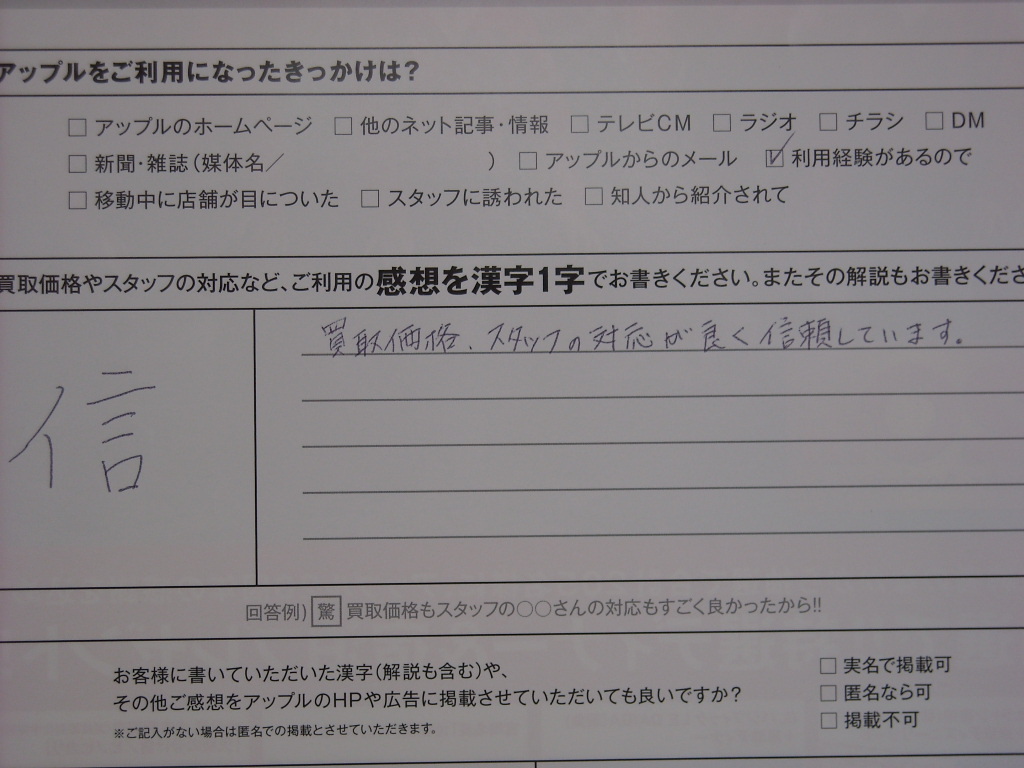 アップルをご利用になったきっかけは?
□ アップルのホームページ □ 他のネット記事・情報 □ テレビCM □ ラジオ □ チラシ □ DM
□ 新聞・雑誌(媒体名／ ) □ アップルからのメール ☑ 利用経験があるので
□ 移動中に店舗が目についた □ スタッフに誘われた □ 知人から紹介されて
買取価格やスタッフの対応など、ご利用の感想を漢字1字でお書きください。またその解説もお書きくださ
信
買取価格、スタッフの対応が良く信頼しています。
回答例) 驚 買取価格もスタッフの○○さんの対応もすごく良かったから!!
お客様に書いていただいた漢字(解説も含む)や、
その他ご感想をアップルのHPや広告に掲載させていただいても良いですか?
※ご記入がない場合は匿名での掲載とさせていただきます。
□ 実名で掲載可
□ 匿名なら可
□ 掲載不可